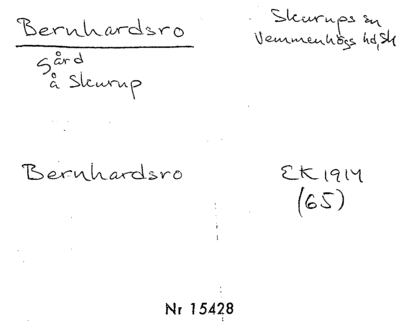 Bernhardsro
Skurups sn
Vemmenhögs hd, Sk
gård
å Skurup
Bernhardsro
EK 1914
(65)
Nr 15428